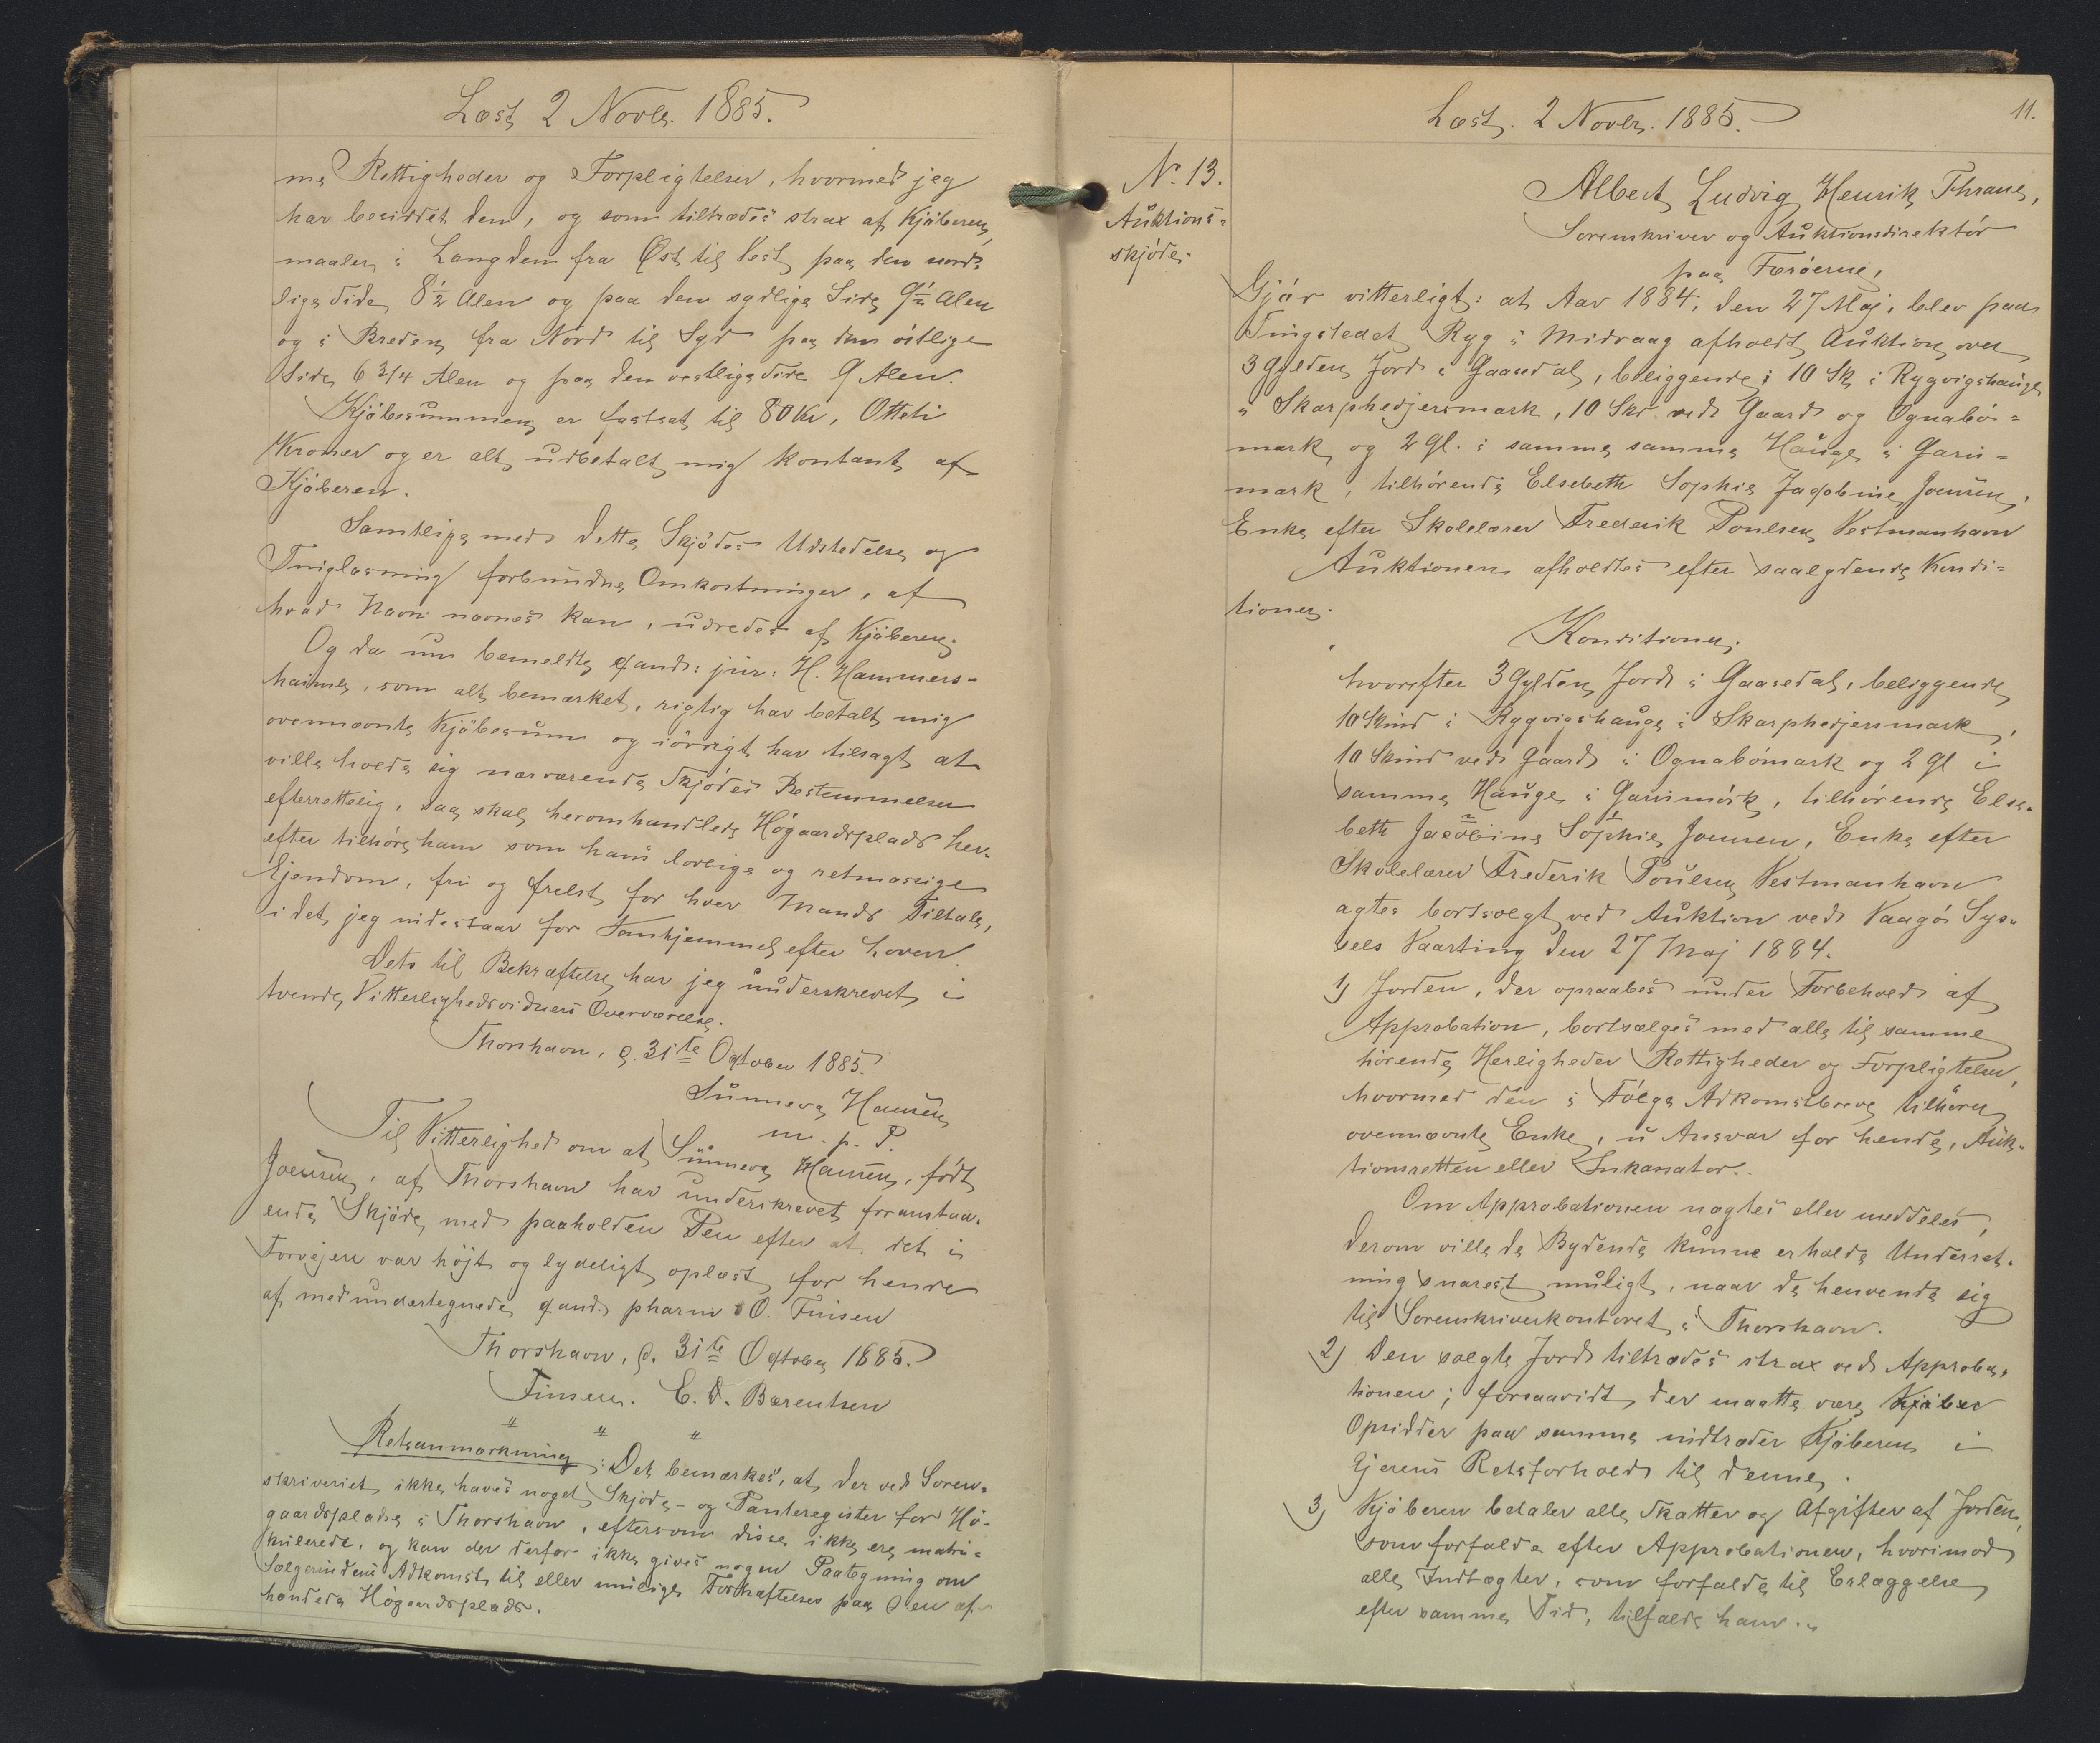 Læst 2 Novbr. 1885.
me Rettigheder og Forpligtelser, hvormed jeg
har besiddet den, og som tiltrædes strax af Kjøberen,
maaler i Længden fra Øst til Vest paa den nord-
lige Side 8½ Alen og paa den sydlige Side 9½ Alen
og i Breden fra Nord til Syd paa den østlige
Side 6 3/4 Alen og paa den vestlige Side 9 Alen.
Kjøbesummen er fastsat til 80 Kr, Otteti
Kroner og er alt udbetalt mig kontant af
Kjøberen.
Samtlige med dette Skjødes Udstedelse og
Tinglæsning forbundne Omkostninger, af
hvad Navn nævnes kan, udredes af Kjøberen.
Og da nu bemeldte cand: jur: H. Hammers-
haimb, som alt bemærket, rigtig har betalt mig
ovennævnte Kjøbesum og iøvrigt har tilsagt at
ville holde sig nærværende Skjødes Bestemmelser
efterrettelig, saa skal heromhandlede Høgaardsplads her-
efter tilhøre ham som hans lovlige og retmæssige
Ejendom, fri og frelst for hver Mands Tiltale,
i det jeg indestaar for Vanhjemmel efter Loven.
Dets til Bekræftelse har jeg underskrevet i
tvende Vitterlighedsvidners Overværelse.
Thorshavn, d. 31te Oktober 1885.
Sunneva Hansen
m. p. P.
Til Vitterlighed om at Sunneva Hansen, født
Joensen, af Thorshavn har underskrevet foranstaa-
ende Skjøde med paaholden Pen efter at det i
Forvejen var højt og lydeligt oplæst for hende
af medundertegnede cand. pharm O. Finsen
Thorshavn, d. 31te Oktober 1885.
Finsen. E. D. Bærentsen
" " "
Retsanmærkning: Det bemærkes, at der ved Soren-
skriveriet ikke haves noget Skjøde- og Panteregister for Hø-
gaardspladse i Thorshavn, eftersom disse ikke ere matri-
kulerede, og kan der derfor ikke gives nogen Paategning om
Sælgerindens Adkomst til eller mulige Forhæftelser paa den af-
hændede Høgaardsplads.
N. 13.
Auktions-
skjøde.
Læst. 2 Novbr. 1885.
11.
Albert Ludvig Henrik Thrane,
Sorenskriver og Auktionsdirektør
paa Færøerne,
Gjør vitterligt: at Aar 1884, den 27 Maj, blev paa
Tingstedet Ryg i Midvaag afholdt Auktion over
3 Gylden Jord i Gaasedal, beliggende: 10 Sk i Rygvigshauge
i Skarphedjersmark, 10 Skd ved Gaard og Ognabø-
mark og 2 Gl. i samme samme Hauge i Garis-
mark, tilhørende Elsebeth Sophie Jacobine Joensen,
Enke efter Skolelærer Frederik Poulsen Vestmanhavn
Auktionen afholdtes efter saalydende Kondi-
tioner.
Konditioner.
hvorefter 3 Gylden Jord i Gaasedal, beliggende
10 Skind i Rygvigshauge i Skarphedjersmark,
10 Skind ved Gaard i Ognabømark og 2 Gl i
samme Hauge i Garismørk, tilhørende Else-
beth Jacobine Sophie Joensen, Enke efter
Skolelærer Frederik Poulsen Vestmanhavn
agtes bortsolgt ved Auktion ved Vaagø Sys-
sels Vaarting den 27 Maj 1884.
1) Jorden, der opraabes under Forbehold af
Approbation, bortsælges med alle til samme
hørende Herligheder Rettigheder og Forpligtelser,
hvormed den i Følge Adkomstbreve tilhører
ovennævnte Enke, u Ansvar for hende, Auk-
tionsretten eller Inkassator.
Om Approbationen nægtes eller meddeles,
derom ville de Bydende kunne erholde Underret-
ning snarest muligt, naar de henvende sig
til Sorenskriverkontoret i Thorshavn.
2) Den solgte Jord tiltrædes strax ved Approba-
tionen; forsaavidt der maatte være Kjøber
Opsidder paa samme indtræder Kjøberen i
Ejerens Retsforhold til denne.
3) Kjøberen betaler alle Skatter og Afgifter af Jorden,
som forfalde efter Approbationen, hvorimod
alle Indtægter, som forfalde til Erlæggelse
efter samme Tid, tilfalde ham.